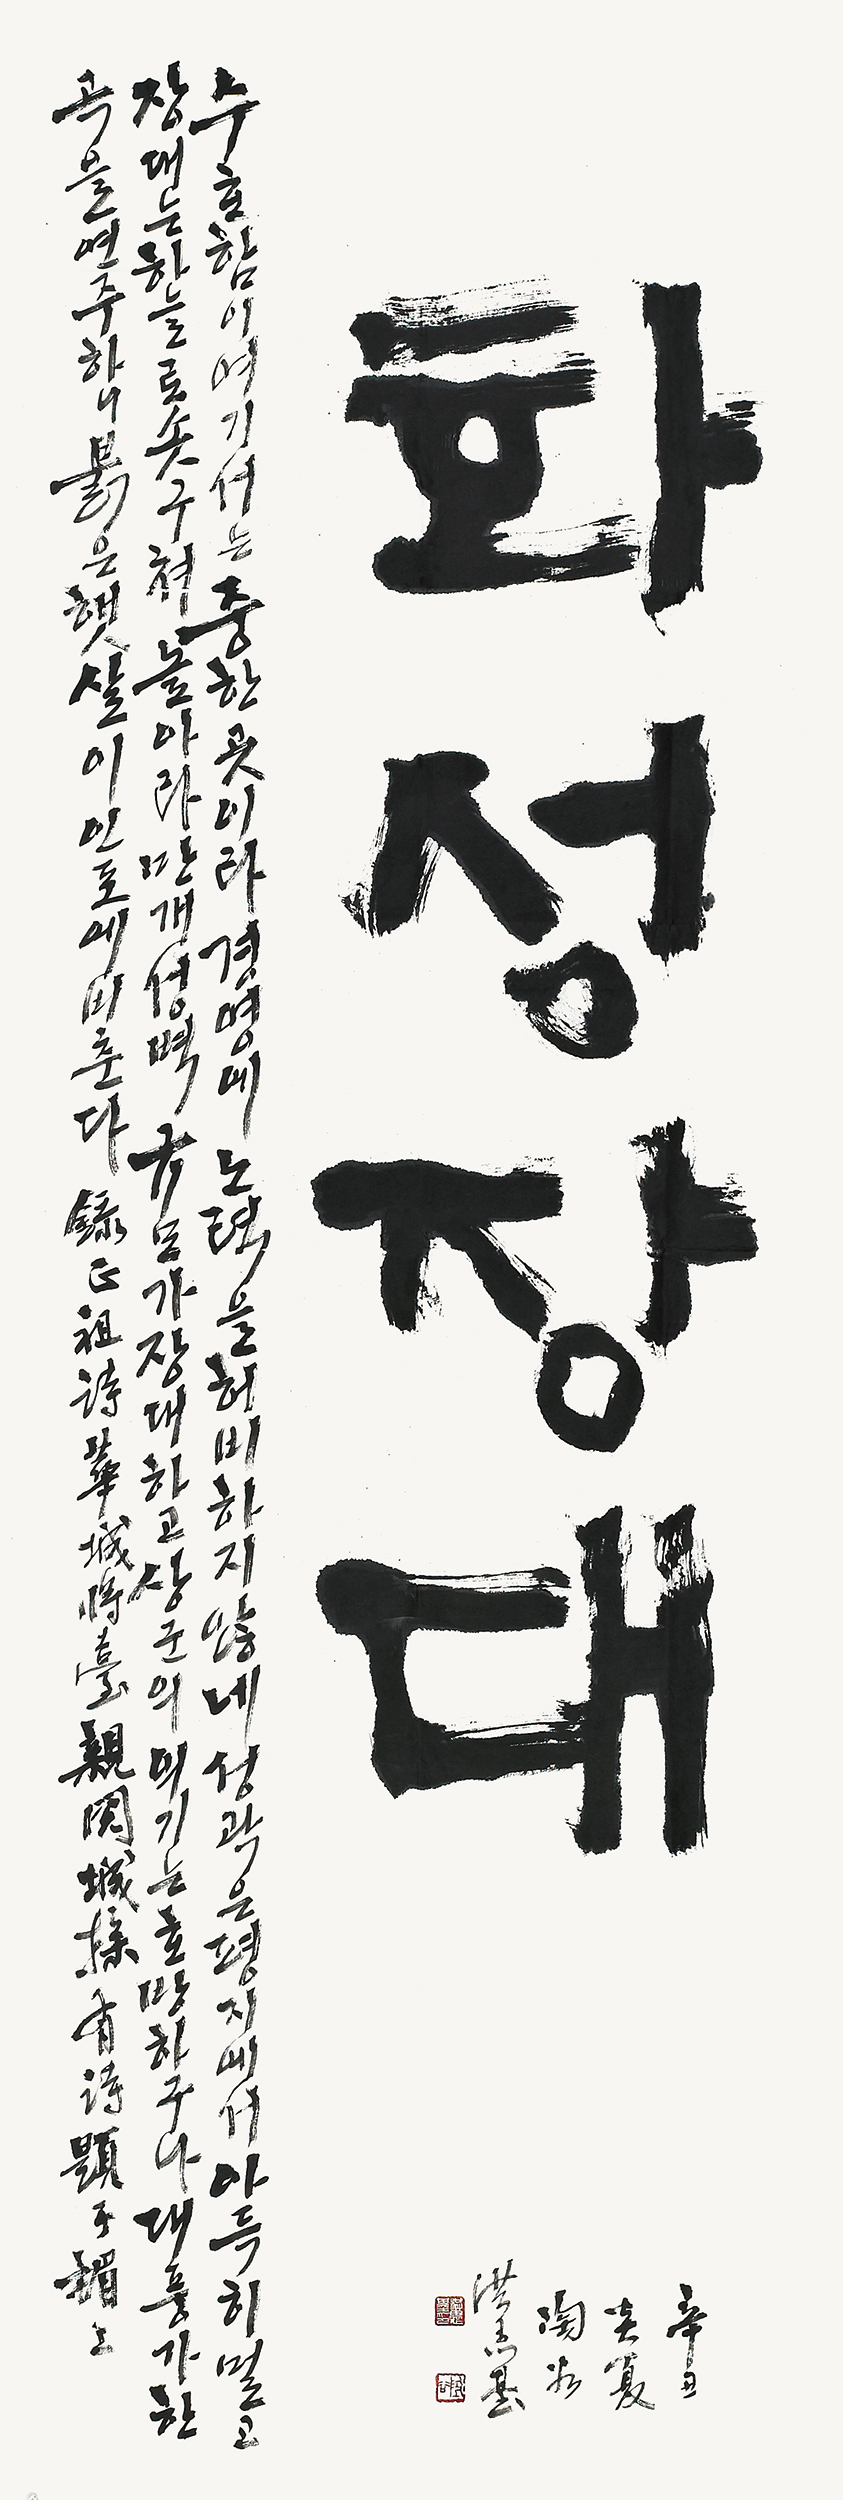 화성장대
수호함이 여기서는 중한 곳이라 경영에 노력을 허비하지 않네 성곽은 평지에서 아득히 멀고
장대는 하늘로 솟구쳐 높아라 만개 성벽 규모가 장대하고 삼군의 의기는 호방하구나 대풍가 한
곡을 연주하니 붉은 햇살이 인포에 비춘다 錄正祖詩華城將臺親閱城操有詩題于楣上
辛丑
炎夏
陶
洪 基